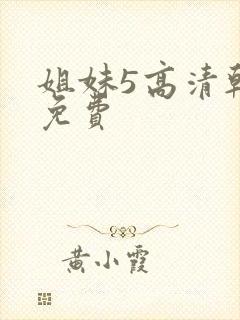 姐妹5高清
免費
黄小霞